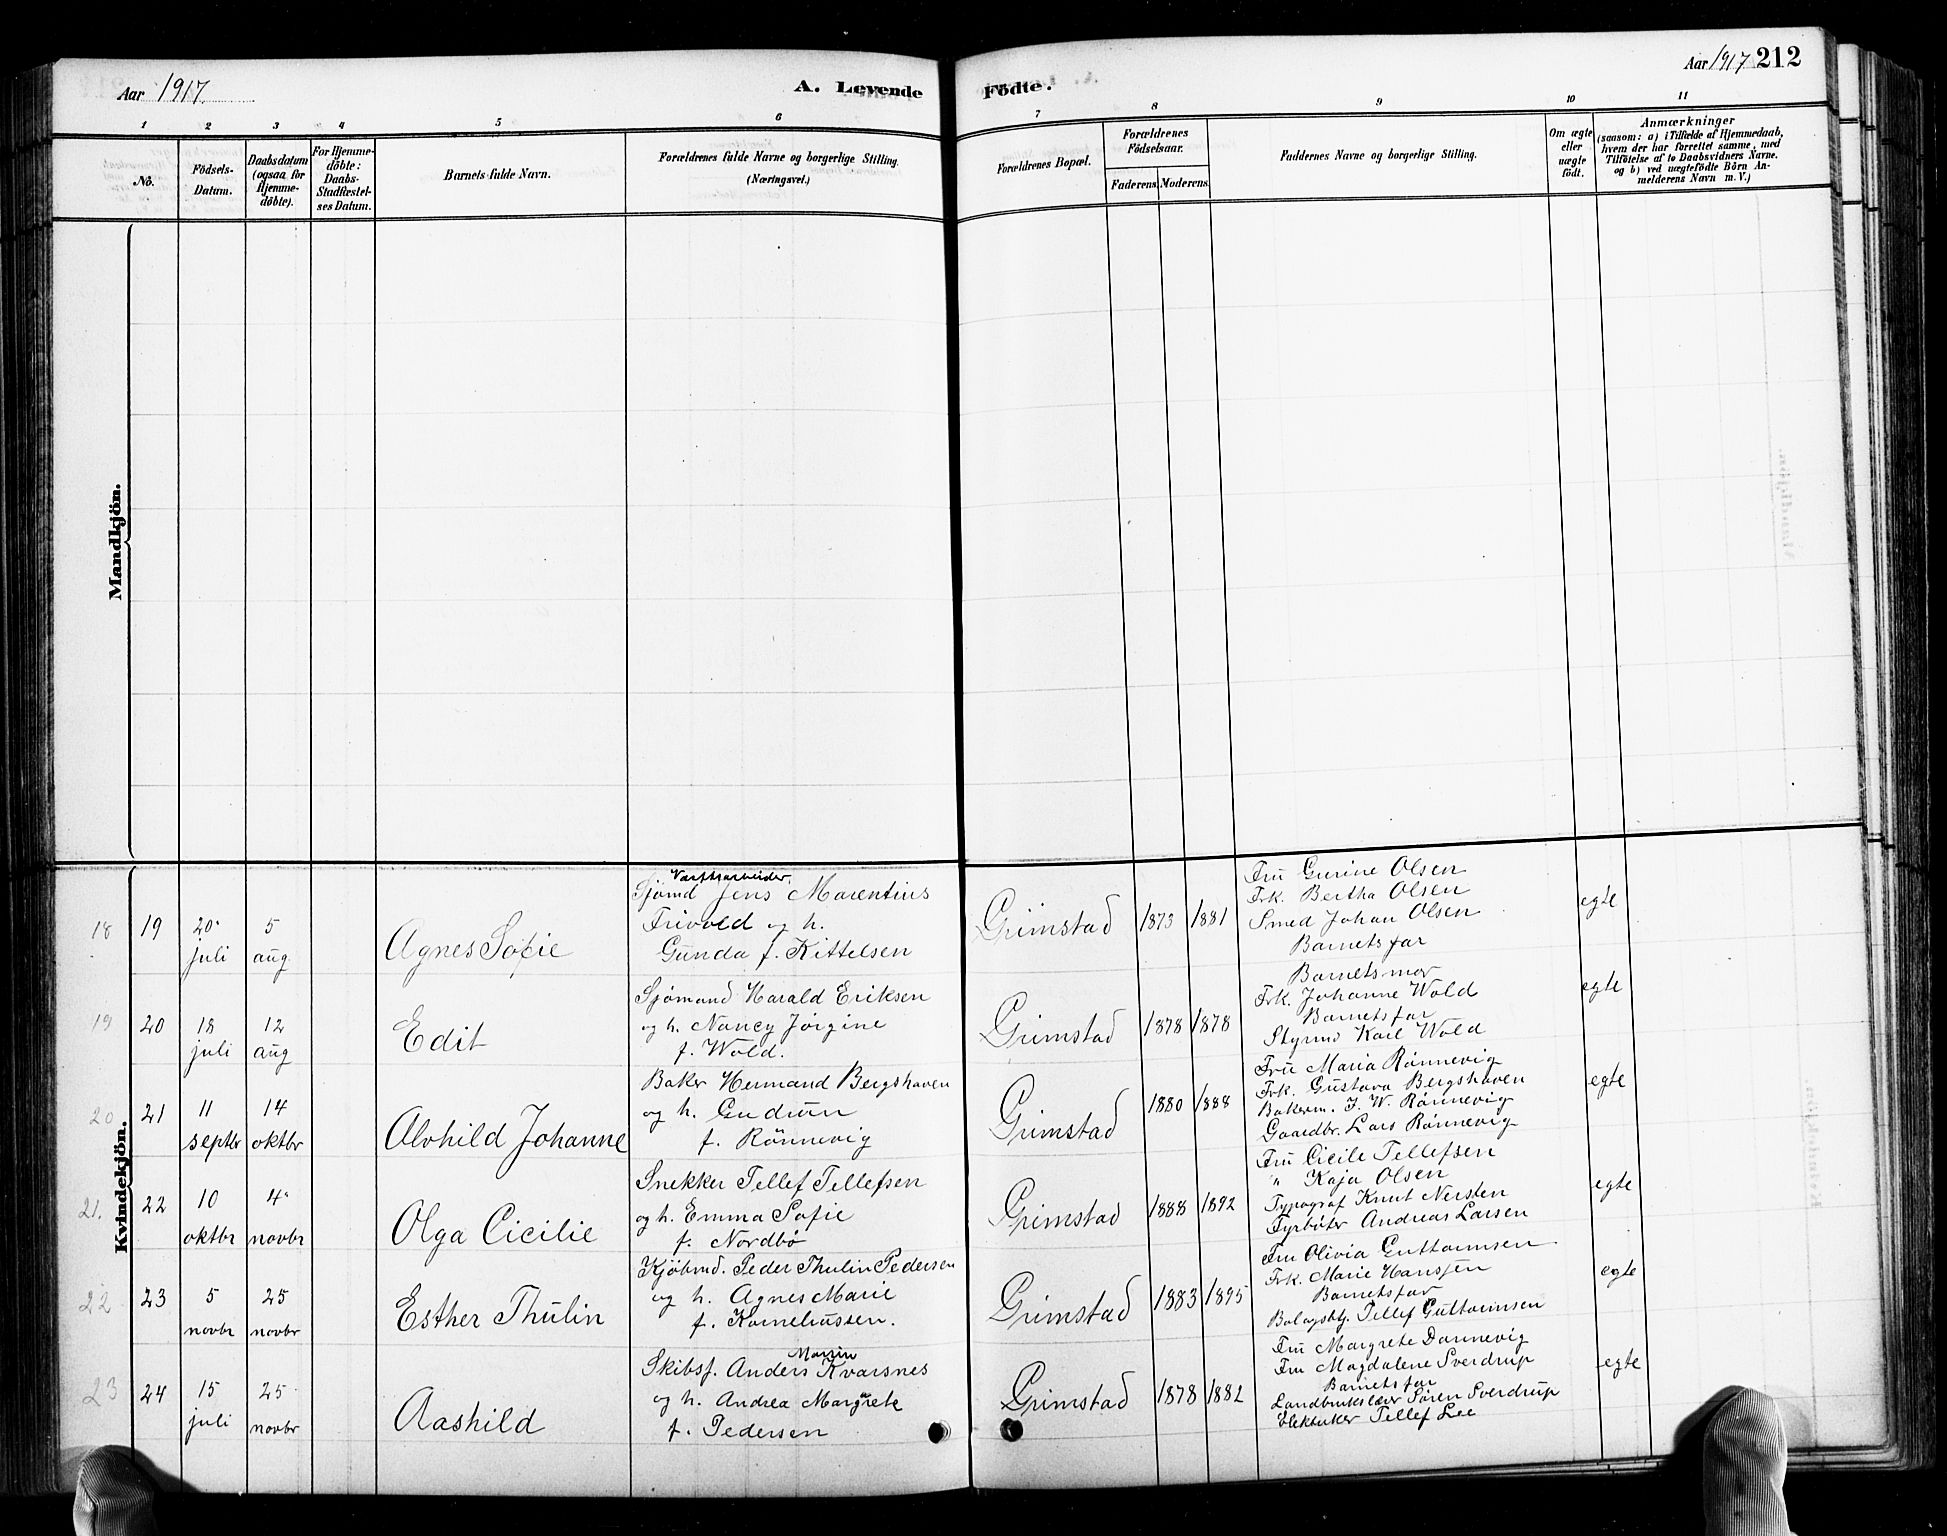 Aar 1917.
A. Levende
Födte.
Aar 1917 212
1 2 3 4 5 6 7 8 9 10 11
No.
Födsels-
Datum.
Daabsdatum
(ogsaa for
Hjemme-
döbte).
For Hjemme-
döbte:
Daabs-
Stadfæstel-
ses Datum.
Barnets fulde Navn.
Forældrenes fulde Navne og borgerlige Stilling.
(Næringsvei.)
Forældrenes Bopæl.
Forældrenes
Födselsaar.
Faderens. Moderens.
Faddernes Navne og borgerlige Stilling.
Om ægte
eller
uægte
födt.
Anmærkninger
(saasom: a) i Tilfælde af Hjemmedaab,
hvem der har forrettet samme, med
Tilföielse af to Daabsvidners Navne.
og b) ved uægtefödte Börn An-
melderens Navn m. V.)
Mandkjön.
Kvindekjön.
18 19 20 juli 5 aug
Agnes Sofie
Værftsarbeider
Sjömd Jens Marentius
Trivold og h.
Gunda f. Kittelsen
Grimstad 1873 1881
Fru Gurine Olsen
Frk. Bertha Olsen
Smed Johan Olsen
Barnets far
egte
19 20 18 juli 12 aug
Edit
Sjömand Harald Eriksen
og h. Nancy Jørgine
f. Wold.
Grimstad 1878 1878
Barnets mor
Frk. Johanne Wold
Barnets far
Styrmd Karl Wold
egte
20 21 11 septbr 14 oktbr
Alvhild Johanne
Baker Hermand Bergshaven
og h. Gudrun
f. Rönnevig
Grimstad 1880 1888
Fru Maria Rönnevig
Frk. Gustava Bergshaven
Bakerm. J. W. Rønnevig
Gaardbr. Lars Rønnevig
egte
21. 22 10 oktbr 4 novbr
Olga Cicilie
Snekker Tellef Tellefsen
og h. Emma Sofie
f. Nordbø
Grimstad 1888 1892
Fru Cicile Tellefsen
" Kaja Olsen
Typograf Knut Nersten
Fyrbøter Andreas Larsen
egte
22 23 5 novbr 25 novbr
Esther Thulin
Kjöbmd. Peder Thulin Pedersen
og h. Agnes Marie
f. Korneliussen.
Grimstad 1883 1895
Fru Olivia Guttormsen
Frk. Marie Hansen
Barnets far
Tellef Guttormsen
egte
23 24 15 juli 25 novbr
Aashild
Martin
Skibsf. Anders Kvarsnes
og h. Andrea Margrete
f. Pedersen
Grimstad 1878 1882
Fru Margrete Dannevig
Fru Magdalene Sverdrup
Barnets far
Landbrukslær Søren Sverdrup
Tellef Lee
egte